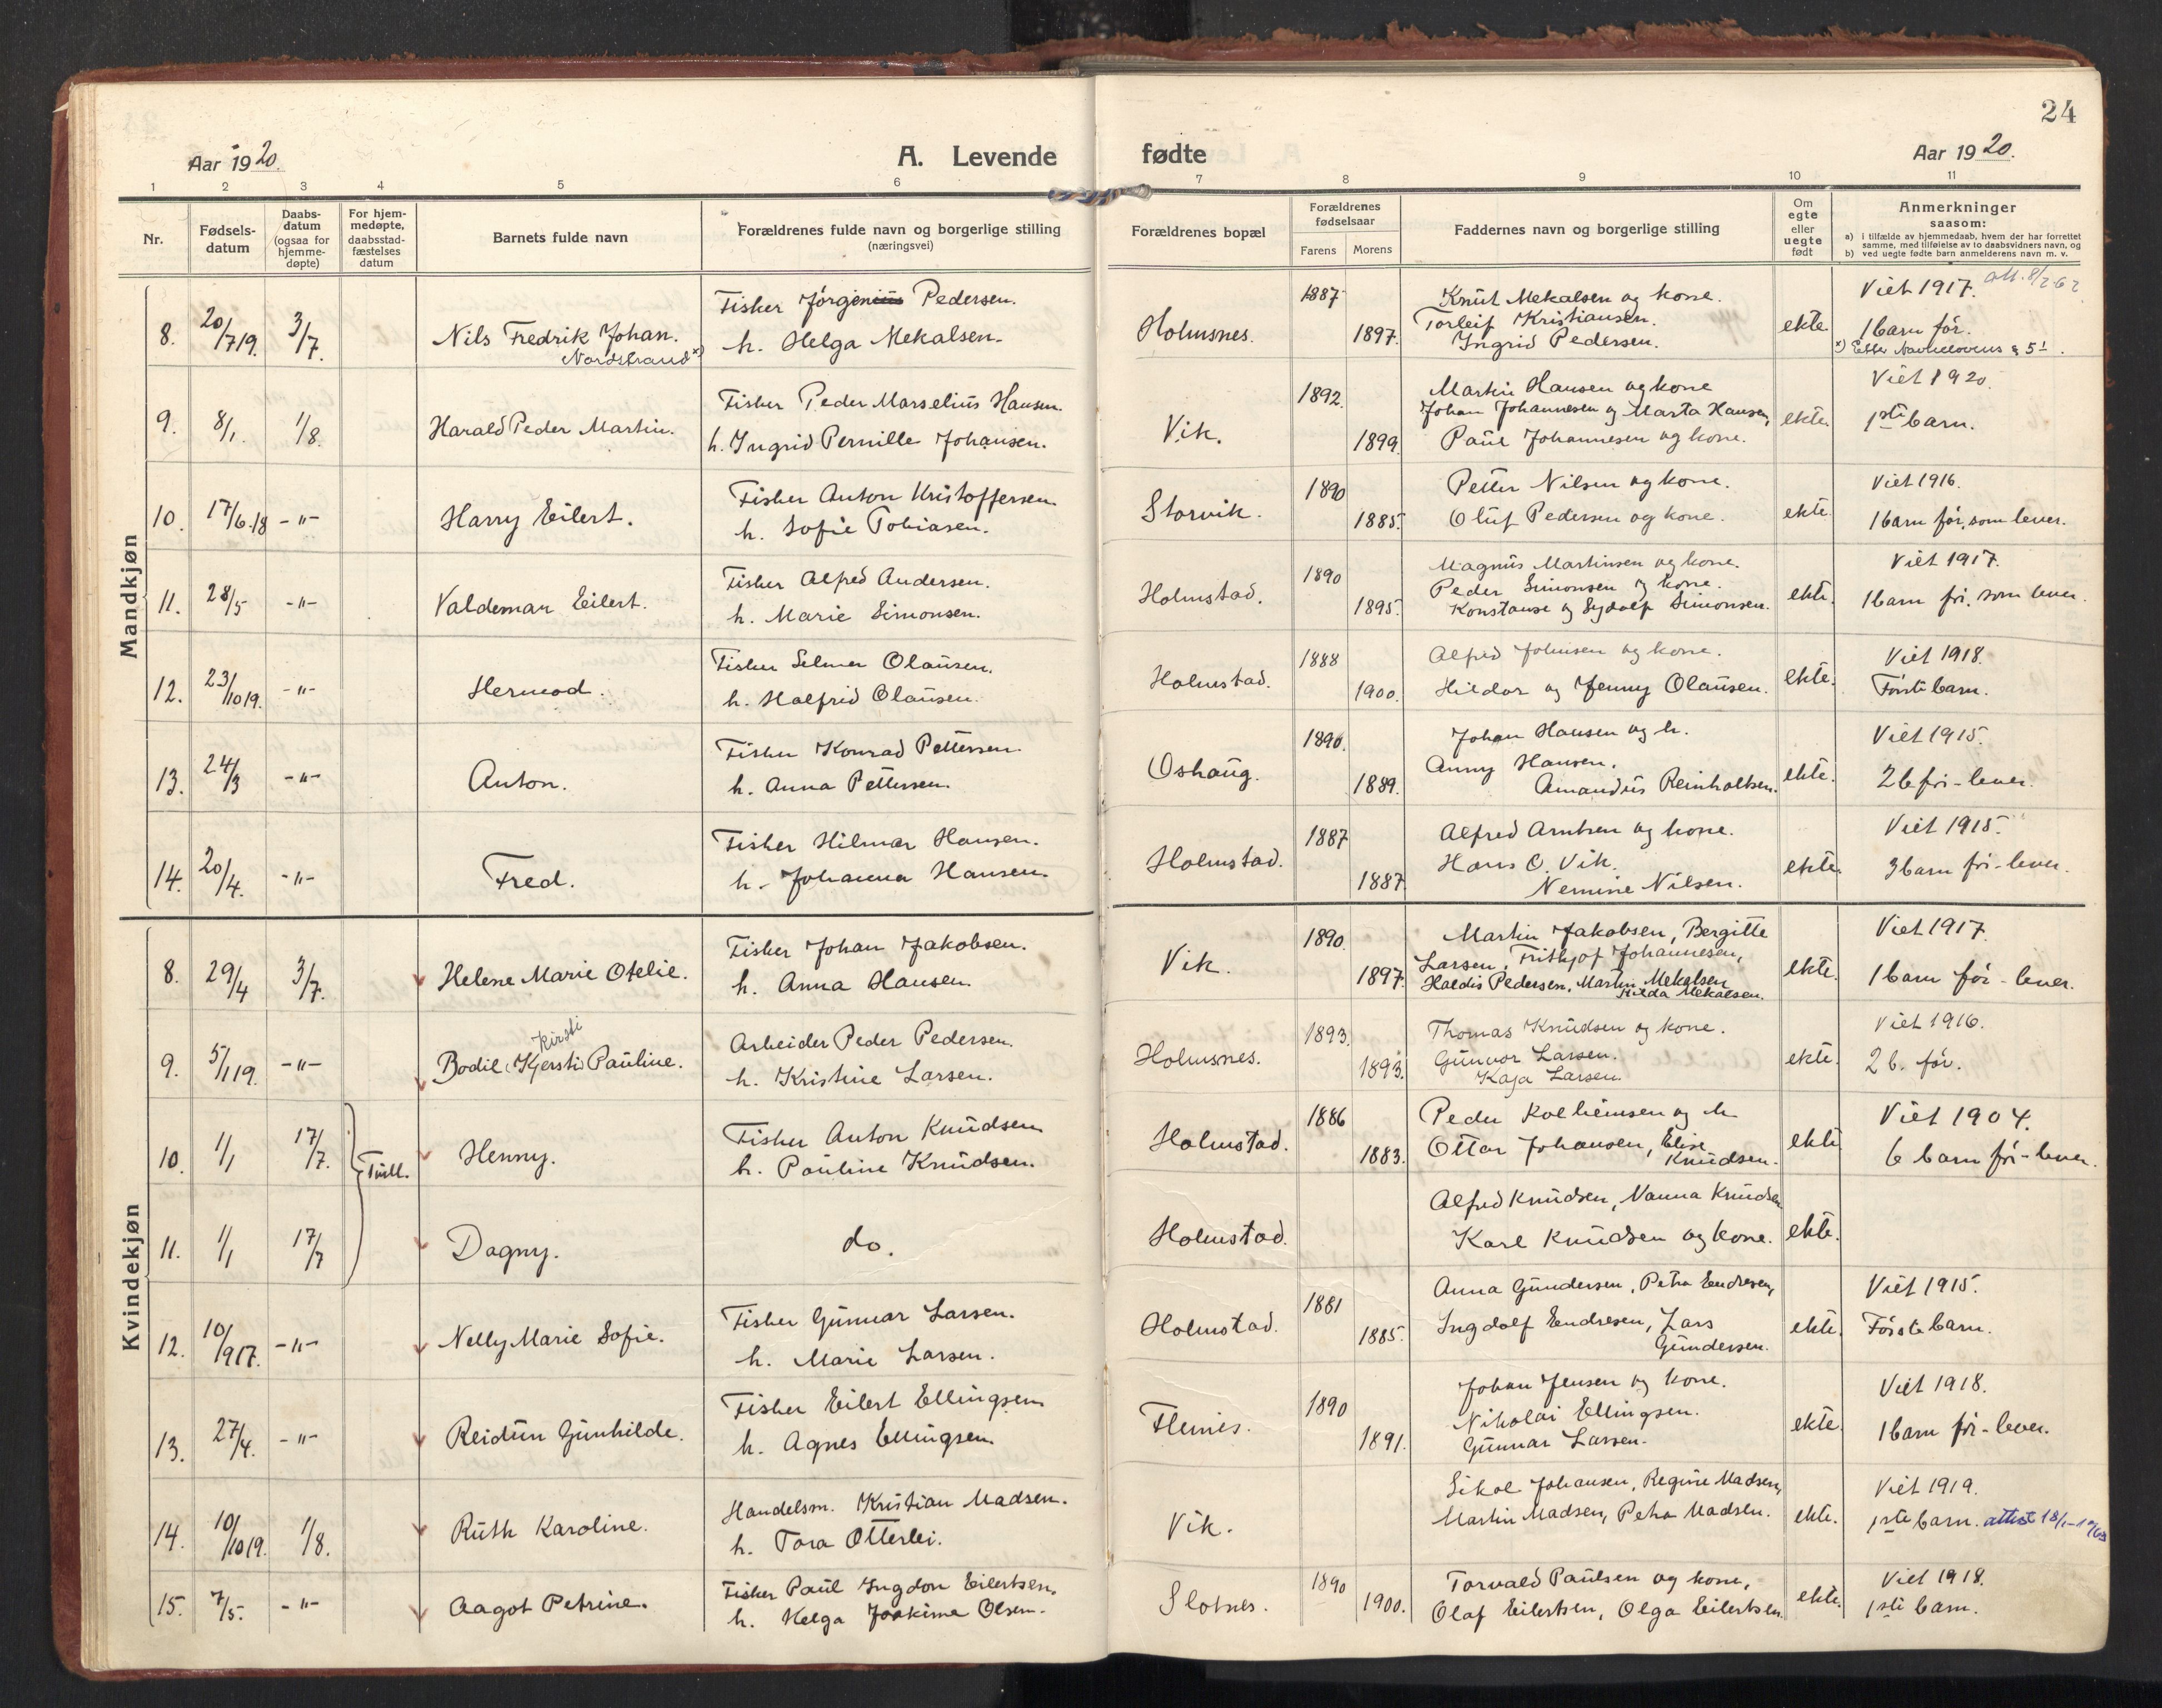 24
Aar 1920.
A. Levende fødte
Aar 1920.
1 2 3 4 5 6 7 8 9 10 11
Nr.
Fødsels-
datum
Daabs-
datum
(ogsaa for
hjemme-
døpte)
For hjem-
medøpte,
daabsstad-
fæstelses
datum
Barnets fulde navn
Forældrenes fulde navn og borgerlige stilling
(næringsvei)
Forældrenes bopæl
Forældrenes
fødselsaar
Farens Morens
Faddernes navn og borgerlige stilling
Om
egte
eller
uegte
født
Anmerkninger
saasom:
a) i tilfælde av hjemmedaab, hvem der har forrettet
samme, med tilføielse av to daabsvidners navn, og
b) ved uegte fødte barn anmelderens navn m. v.
Mandkjøn
8. 20/7 19. 3/7. Nils Fredrik Johan.
Nordstrand x)
Fisker Jørginius Pedersen.
h. Helga Mekalsen.
Holmsnes. 1887 1897.
Knut Mekalsen og kone.
Torleif Kristiansen.
Ingrid Pedersen.
ekte.
Viet 1917. att. 8/2-62
1 barn før.
x) Etter Navnelovens § 5 1.
9. 8/1. 1/8. Harald Peder Martin.
Fisker Peder Marselius Hansen.
h. Ingrid Pernille Johansen.
Vik. 1892. 1899.
Martin Hansen og kone
Johan Johannesen og Marta Hansen,
Paul Johannesen og kone.
ekte.
Viet 1920.
1ste barn.
10. 17/6.18 -"- Harry Eilert.
Fisker Anton Kristoffersen
h. Sofie Tobiasen.
Storvik. 1890 1885.
Petter Nilsen og kone.
Oluf Pedersen og kone.
ekte.
Viet 1916.
1 barn før, som lever.
11. 28/5 -"- Valdemar Eilert.
Fisker Alfred Andersen.
h. Marie Simonsen.
Holmstad. 1890 1895.
Magnus Martinsen og kone.
Peder Simonsen og kone.
Konstanse og Sydolf Simonsen.
ekte.
Viet 1917.
1 barn før. som lever.
12. 23/10 19. -"- Hermod.
Fisker Selmer Olausen.
h. Halfrid Olausen.
Holmstad. 1888 1900.
Alfred Johnsen og kone.
Hildor og Jenny Olausen.
ekte.
Viet 1918.
Første barn.
13. 24/3 -"- Anton.
Fisker Konrad Pettersen.
h. Anna Pettersen.
Oshaug. 1890. 1889.
Johan Hansen og h.
Anny Hansen.
Amandus Reinholtsen.
ekte.
Viet 1915.
2 b før - lever.
14. 20/4. -"- Fred.
Fisker Hilmar Hansen.
h. Johanna Hansen.
Holmstad. 1887 1887.
Alfred Arntsen og kone.
Hans O. Vik.
Nemine Nilsen.
ekte.
Viet 1915.
3 barn før - lever.
Kvindekjøn
8. 29/4 3/7. Helene Marie Otelie.
Fisker Johan Jakobsen.
h. Anna Hansen.
Vik. 1890. 1897.
Martin Jakobsen, Bergitte
Larsen, Frithjof Johannesen,
Haldis Pedersen. Martin Mekalsen
Hilda Mekalsen.
ekte.
Viet 1917.
1 barn før - lever.
9. 5/1 19. -"- Kirsti
Bodil (Kjersti) Pauline.
Arbeider Peder Pedersen.
h. Kristine Larsen.
Holmsnes. 1893. 1893.
Thomas Knudsen og kone.
Gunvor Larsen.
Kaja Larsen.
ekte.
Viet 1916.
2 b. før.
10. 1/1 17/7. Tvill. Henny.
Fisker Anton Knudsen
h. Pauline Knudsen.
Holmstad. 1886 1883.
Peder Kolbeinsen og h
Ottar Johansen, Elise
Knudsen.
ekte
Viet 1904.
6 barn før - lever.
11. 1/1 17/7 Dagny.
do.
Holmstad.
Alfred Knudsen, Nanna Knudsen
Karl Knudsen og kone.
ekte.
12. 10/9 17. -"- Nelly Marie Sofie.
Fisker Gunnar Larsen.
h. Marie Larsen.
Holmstad. 1881 1885.
Anna Gundersen, Petra Endresen,
Ingdolf Endresen, Lars
Gundersen.
ekte.
Viet 1915.
Første barn.
13. 27/4. -"- Reidun Gunhilde.
Fisker Eilert Ellingsen
h. Agnes Ellingsen
Fleines. 1890 1891.
Johan Jensen og kone.
Nikolai Ellingsen.
Gunnar Larsen.
ekte.
Viet 1918.
1 barn før - lever.
14. 10/10 19. 1/8. Ruth Karoline.
Handelsm. Kristian Madsen.
h. Tora Otterlei.
Vik.
Johansen, Regine Madsen,
Martin Madsen, Petra Madsen.
ekte.
Viet 1919.
1ste barn. attest 18/1-
15. 7/5. -"- Aagot Petrine.
Fisker Paul Ingdon Eilertsen.
h. Helga Joakime Olsen.
Slotnes. 1890 1900.
Torvald Paulsen og kone,
Olaf Eilertsen, Olga Eilertsen.
ekte.
Viet 1918.
1ste barn.